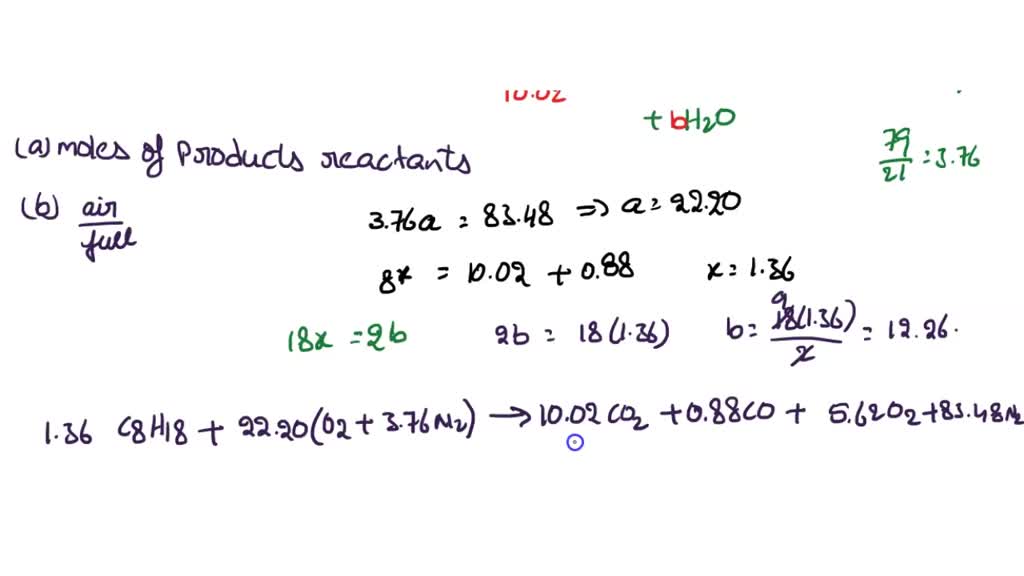 10.02
+ bH2O
(a) moles of products reactants
79/21 = 3.76
(b) air/full
3.76a = 83.48 => a = 22.20
8x = 10.02 + 0.88 x = 1.36
18x = 2b 2b = 18(1.36) b = 9 18(1.36)/2 = 12.26.
1.36 C8H18 + 22.20(O2 + 3.76N2) → 10.02CO2 + 0.88CO + 5.62O2 + 83.48N2